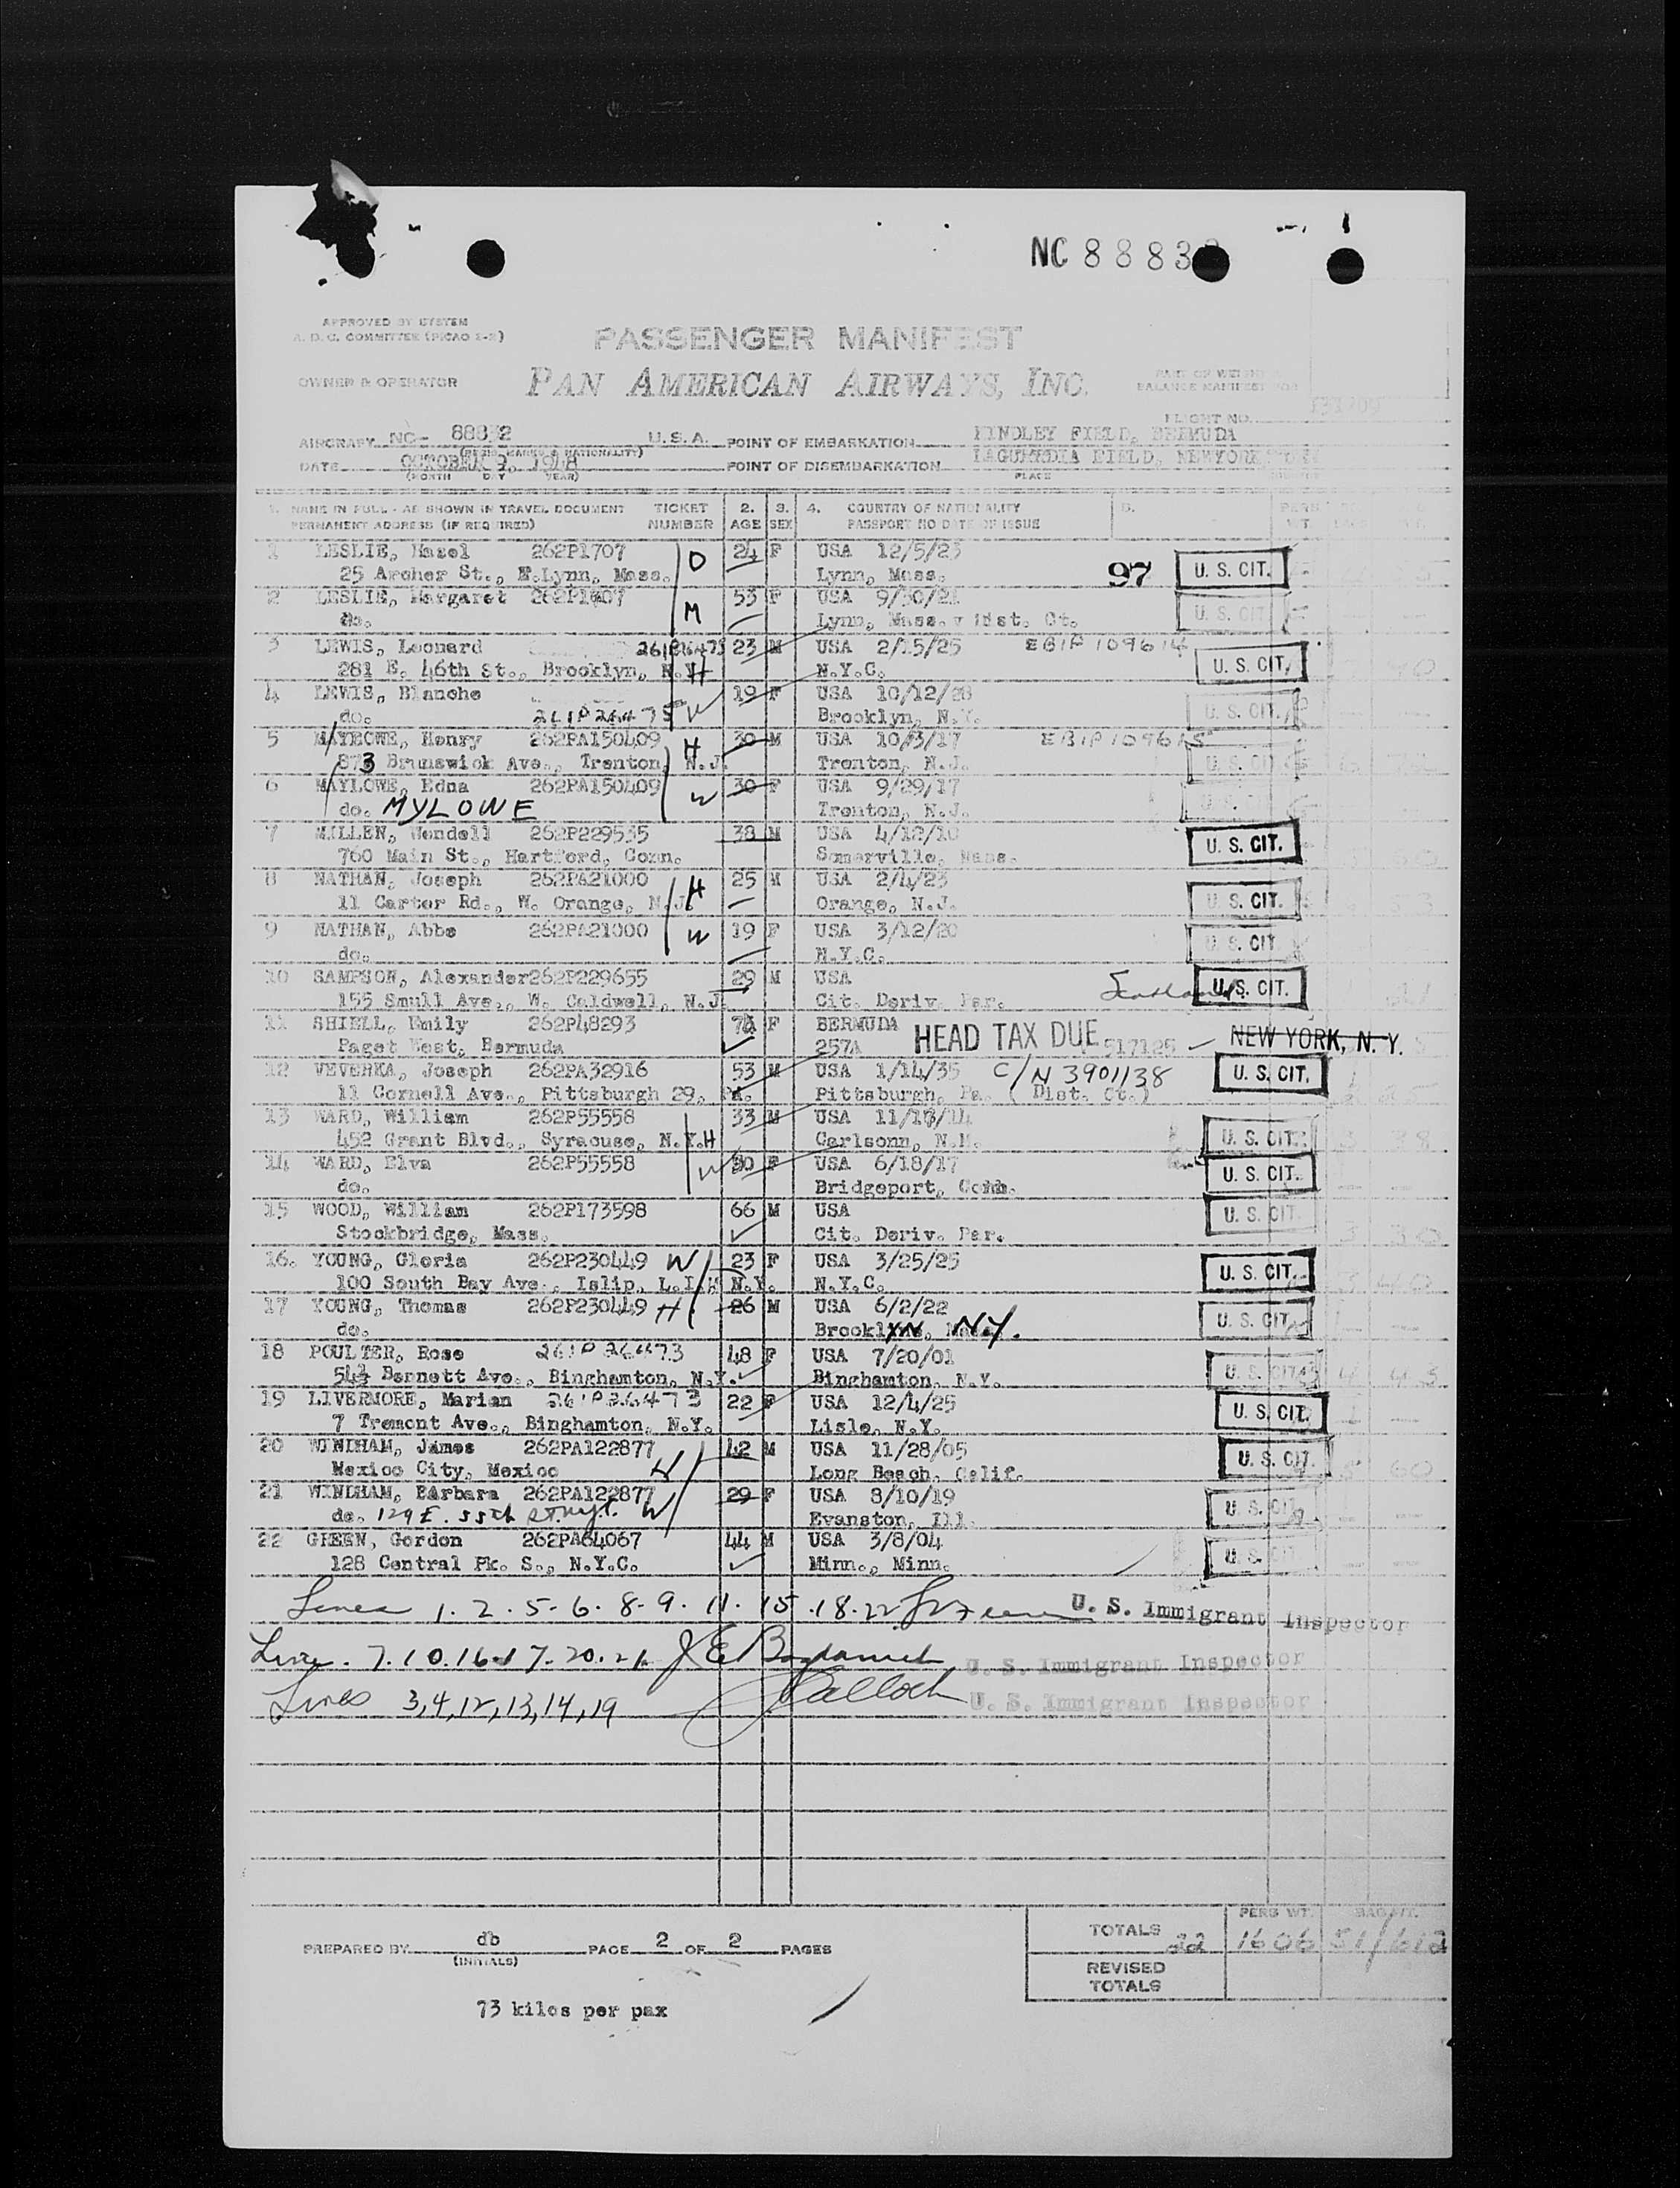 NC 8883
APPROVED BY SYSTEM
A. D. C. COMMITTEE (PICAO 2-2)
PASSENGER MANIFEST
OWNER & OPERATOR
PAN AMERICAN AIRWAYS, INC.
PART OF WEIGHT &
BALANCE MANIFEST FOR
FLIGHT NO.
AIRCRAFT NC- 88832 U.S.A. POINT OF EMBARKATION KINDLEY FIELD, BERMUDA
(REGIS. MARKS & NATIONALITY)
DATE OCTOBER 9, 1948 POINT OF DISEMBARKATION LAGUARDIA FIELD, NEWYORK
(MONTH DAY YEAR) PLACE
1. NAME IN FULL - AS SHOWN IN TRAVEL DOCUMENT TICKET 2. 3. 4. COUNTRY OF NATIONALITY 5. PERS
PERMANENT ADDRESS (IF REQUIRED) NUMBER AGE SEX PASSPORT NO DATE OF ISSUE WT.
1 LESLIE, Hazel 262P1707 D 24 F USA 12/5/23
25 Archer St., E.Lynn, Mass. Lynn, Mass. 97 U. S. CIT.
2 LESLIE, Margaret 262P1707 53 F USA 9/30/21
do. M Lynn, Mass. Dist. Ct. U. S. CIT
3 LEWIS, Leonard 261P26475 23 M USA 2/15/25 EBIP 109614
281 E. 46th St., Brooklyn, N.Y. H N.Y.C. U. S. CIT.
4 LEWIS, Blanche 19 F USA 10/12/28
do. 261P26475 W Brooklyn, N.Y. U. S. CIT.
5 MAYLOWE, Henry 262PA150409 H 30 M USA 10/3/17 EBIP109615
873 Brunswick Ave., Trenton, N.J. Trenton, N.J. U. S. CIT
6 MAYLOWE, Edna 262PA150409 W 30 F USA 9/29/17
do. MYLOWE Trenton, N.J.
7 MILLEN, Wendell 262P229535 38 M USA 4/18/10
760 Main St., Hartford, Conn. Somerville, Mass. U. S. CIT.
8 NATHAN, Joseph 262PA21000 H 25 M USA 2/4/23
11 Carter Rd., W. Orange, N.J. Orange, N.J. U. S. CIT.
9 NATHAN, Abbe 262PA21000 W 19 F USA 3/12/20
do. N.Y.C. U. S. CIT
10 SAMPSON, Alexander262P229655 29 M USA
155 Smull Ave., W. Caldwell, N.J. Cit. Deriv. Par. Scotland U. S. CIT.
11 SHIELL, Emily 262P48293 F BERMUDA HEAD TAX DUE 517125 NEW YORK, N. Y.
Paget West, Bermuda 257A
12 VEVERKA, Joseph 262PA32916 53 M USA 1/14/35 C/N 3901138 U. S. CIT.
11 Cornell Ave., Pittsburgh 29, Pa. Pittsburgh, Pa. (Dist. Ct.)
13 WARD, William 262P55558 33 M USA 11/18/14
452 Grant Blvd., Syracuse, N.Y. H Carlsonn, N.M. U. S. CIT.
14 WARD, Elva 262P55558 W 30 F USA 6/18/17
do. Bridgeport, Conn. U. S. CIT.
15 WOOD, William 262P173598 66 M USA U. S. CIT
Stockbridge, Mass. Cit. Deriv. Par. 3 30
16. YOUNG, Gloria 262P230449 W 23 F USA 3/25/25
100 South Bay Ave., Islip, L.I. N.Y. N.Y.C. U. S. CIT. 3 40
17 YOUNG, Thomas 262P230449 H 26 M USA 6/2/22
do. Brooklyn, NY. U. S. CIT
18 POULTER, Rose 261P26473 48 F USA 7/20/01
54½ Bennett Ave., Binghamton, N.Y. Binghamton, N.Y. U. S. CIT 4 43
19 LIVERMORE, Marian 261P26473 22 F USA 12/4/25
7 Tremont Ave., Binghamton, N.Y. Lisle, N.Y. U. S. CIT.
20 WINDHAM, James 262PA122877 42 M USA 11/28/05
Mexico City, Mexico H Long Beach, Calif. U. S. CIT. 5 60
21 WINDHAM, Barbara 262PA122877 29 F USA 8/10/19
do. 129 E. 55th St NYC. W Evanston, Ill. U. S. CIT
22 GREEN, Gordon 262PA64067 44 M USA 3/8/04
128 Central Pk. S., N.Y.C. Minn., Minn. U. S. CIT
Lines 1. 2. 5- 6. 8- 9. 11. 15 .18.22 U. S. Immigrant Inspector
Line. 7.10.16.17.20.21 U. S. Immigrant Inspector
Lines 3,4,12,13,14,19 U. S. Immigrant Inspector
PREPARED BY db PAGE 2 OF 2 PAGES
(INITIALS)
PERS WT. BAG WT.
TOTALS 22 1606 51/612
REVISED
TOTALS
73 kilos per pax